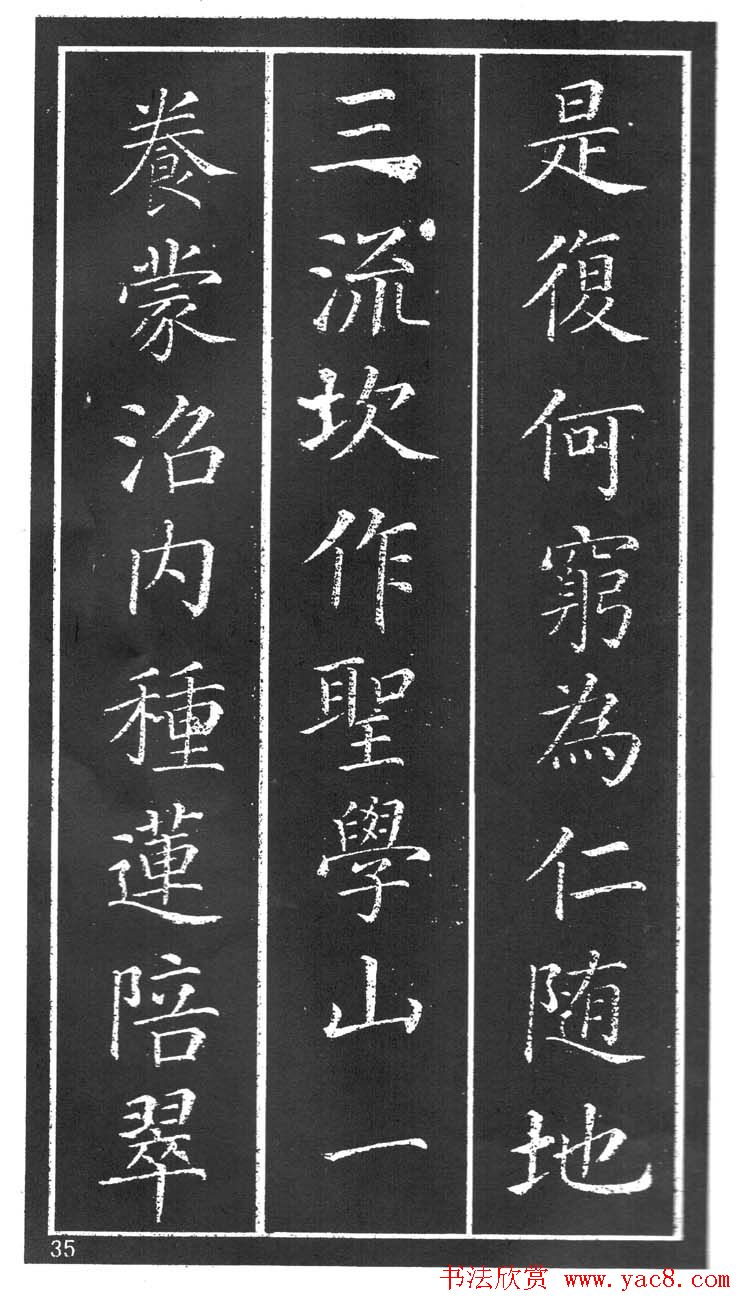 是復何窮為仁隨地
三流坎作聖學山一
養蒙沼內種蓮陪翠
35
书法欣赏 www.yac8.com